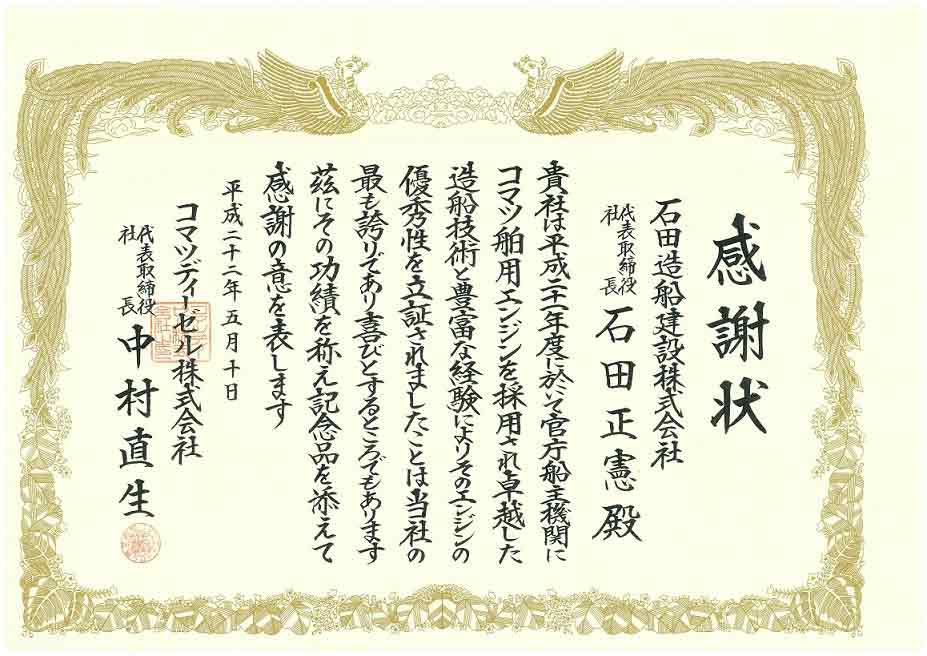 感謝状
石田造船建設株式会社
代表取締役
社長
石田正憲殿
貴社は平成二十一年度に於いて官庁船主機関に
コマツ舶用エンジンを採用され卓越した
造船技術と豊富な経験によりそのエンジンの
優秀性を立証されましたことは当社の
最も誇りであり喜びとするところでもあります
茲にその功績を称え記念品を添えて
感謝の意を表します
平成二十二年五月十日
コマツディーゼル株式会社
代表取締役
社長
中村直生